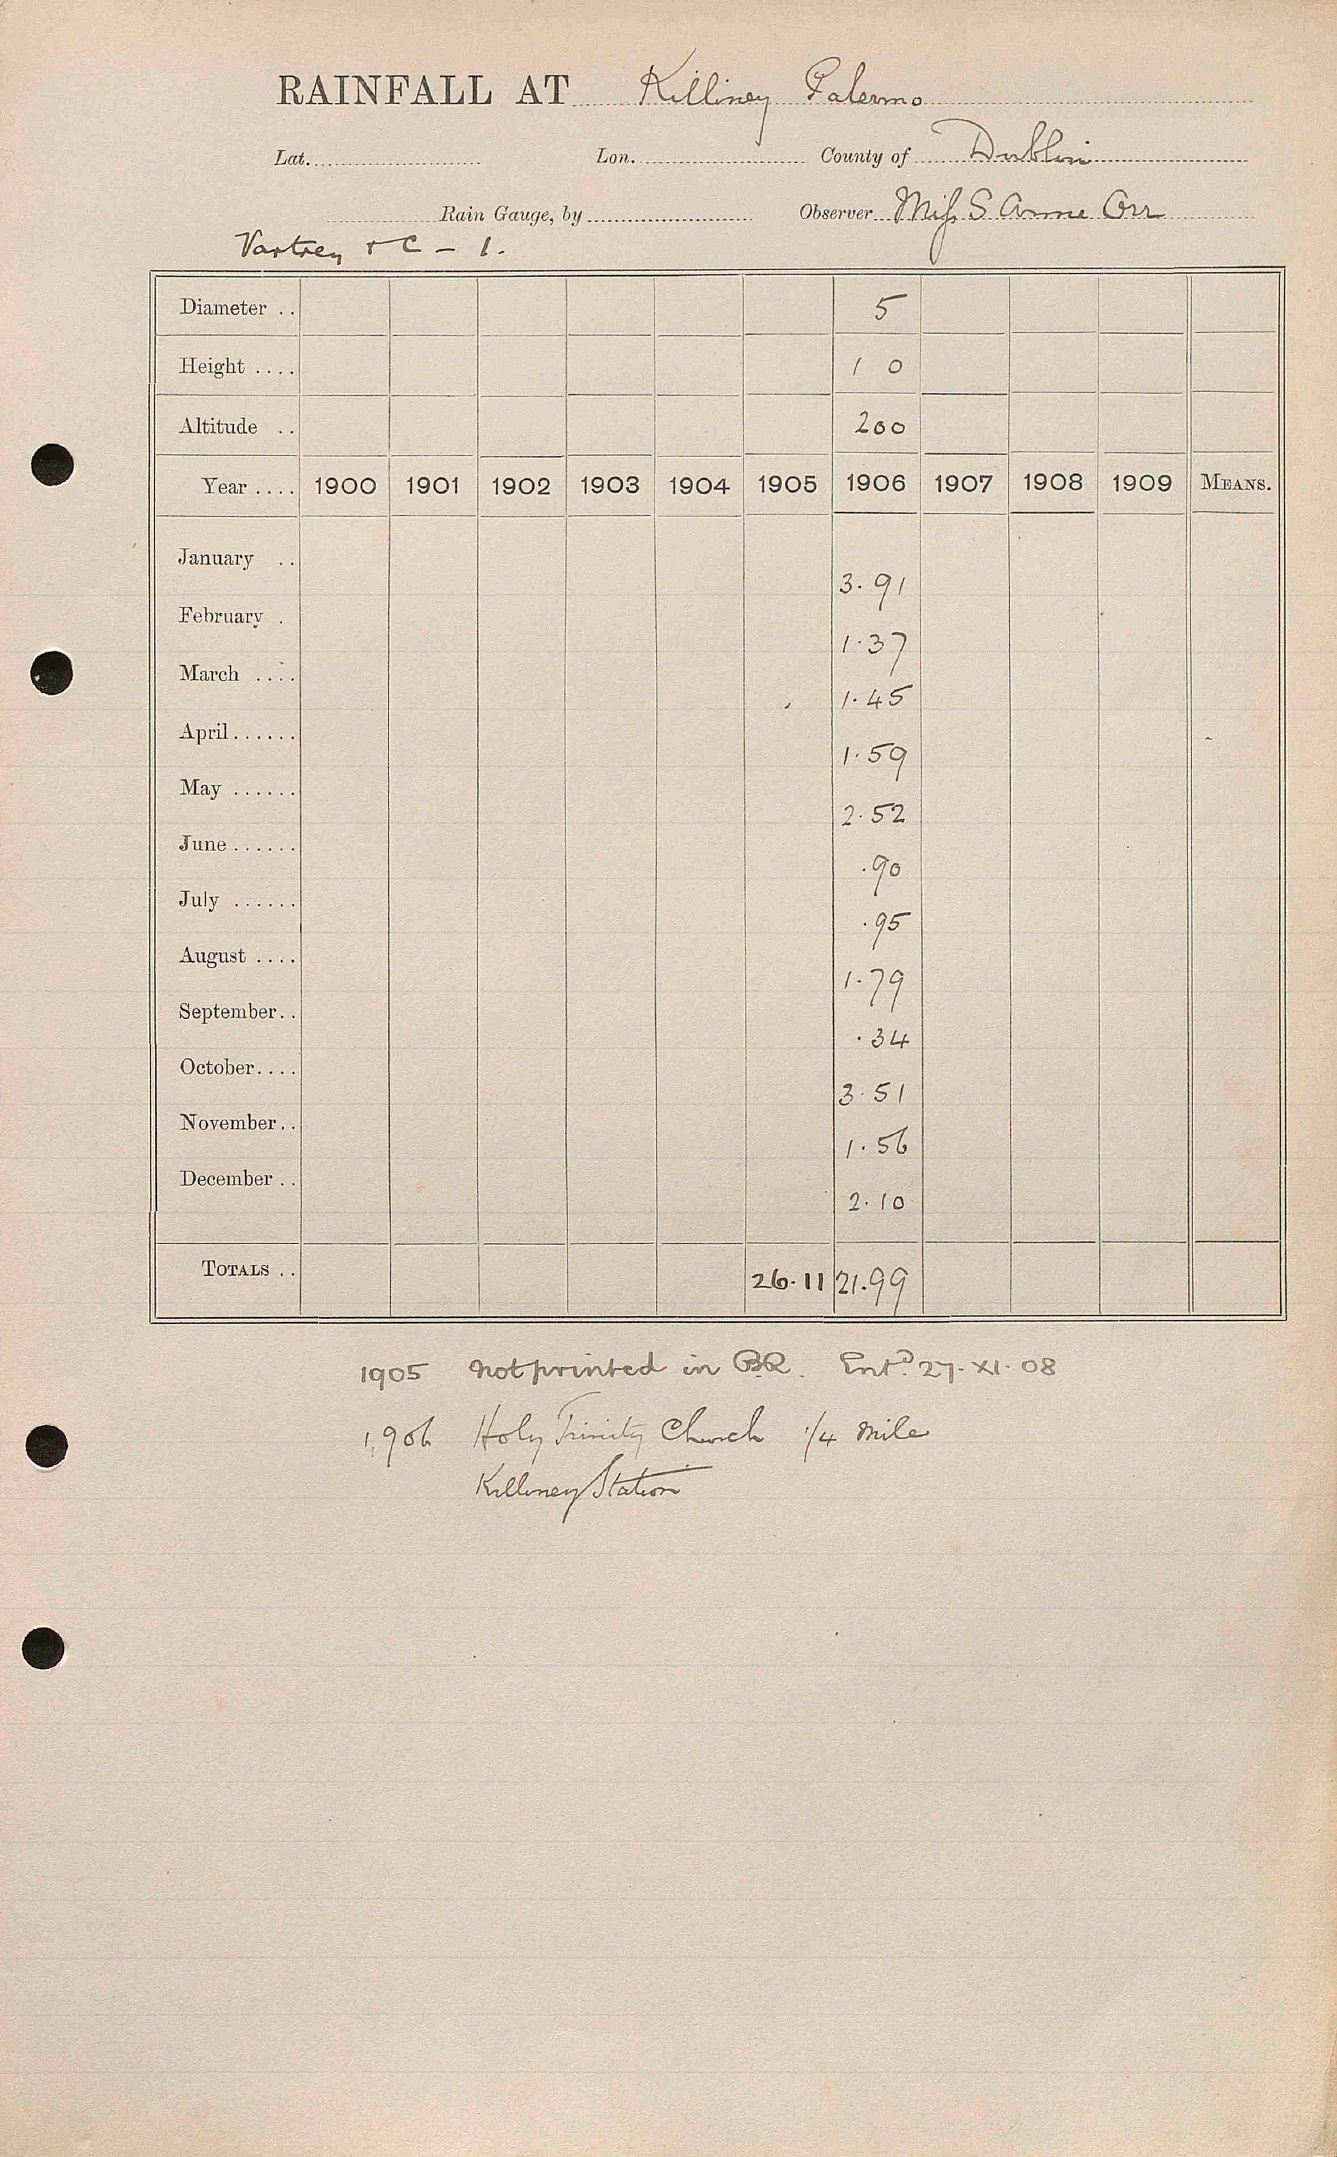 RAINFALL AT Killiney Palermo
Lat. Lon. County of Dublin
Rain Gauge, by Observer Miss S Anne Orr
Vartrey & C – 1.
Diameter .. 5
Height .... 1 0
Altitude .. 200
Year .... 1900 1901 1902 1903 1904 1905 1906 1907 1908 1909 MEANS.
January .. 3.91
February . 1.37
March .... 1.45
April...... 1.59
May ...... 2.52
June ...... .90
July ...... .95
August .... 1.79
September.. .34
October.... 3.51
November.. 1.56
December .. 2.10
TOTALS .. 26.11 21.99
1905 not printed in B.R. Entd. 27.XI.08
1906 Holy Trinity Church 1/4 mile
Killiney Station